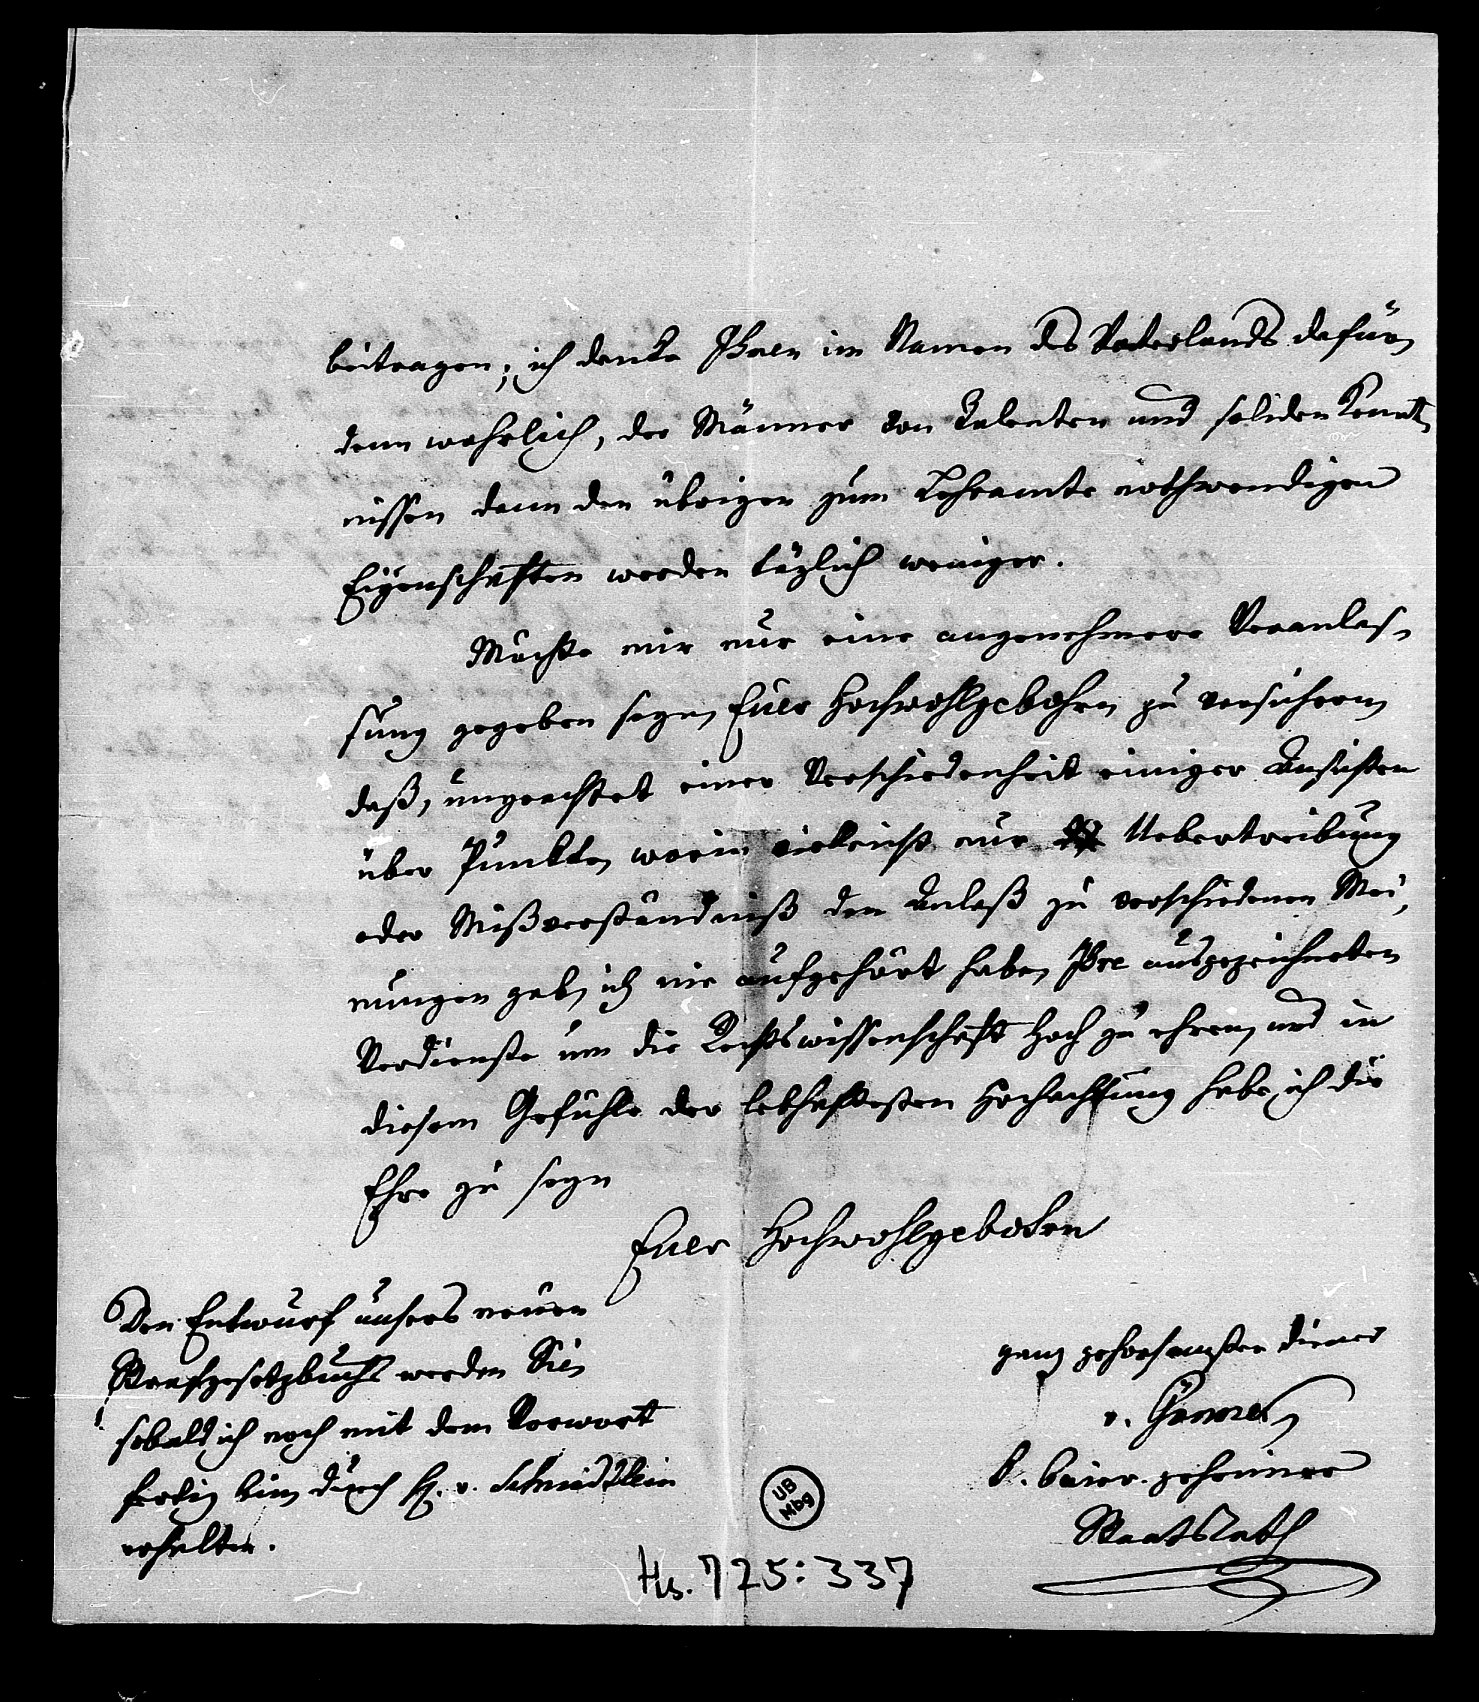 beitragen; ich danke Ihnen im Namen des Vaterlands dafür,
denn wahrlich, der Männer von Talenten und soliden Kennt,
nissen dann den übrigen zum Lehramte nothwendigen
Eigenschaften werden täglich weniger.
Möchte mir nur eine angenehmere Veranlas,
sung gegeben seyn, Euer Hochwohlgebohrn zu versichern,
daß, ungeachtet einer Verschiedenheit einiger Ansichten
über Punkte, worin vieleicht nur Uebertreibung
oder Mißverständniß den Anlaß zu verschiedenen Mei,
nungen gab, ich nie aufgehört habe, Ihre ausgezeichneten
Verdienste um die Rechtswissenschaft hoch zu ehren, und in
diesem Gefühle der lebhaftesten Hochachtung habe ich die
Ehre zu seyn
Euer Hochwohlgebohrn
ganz gehorsamster Diener
v. Gönner,
k. baier. geheimer
Staatsrath
Den Entwurf unsers neuen
Strafgesetzbuchs werden Sie,
sobald ich noch mit dem Vorwort
fertig bin, durch H. v. Schmidtlein
erhalten.
UB
Mbg
Hs. 725:337